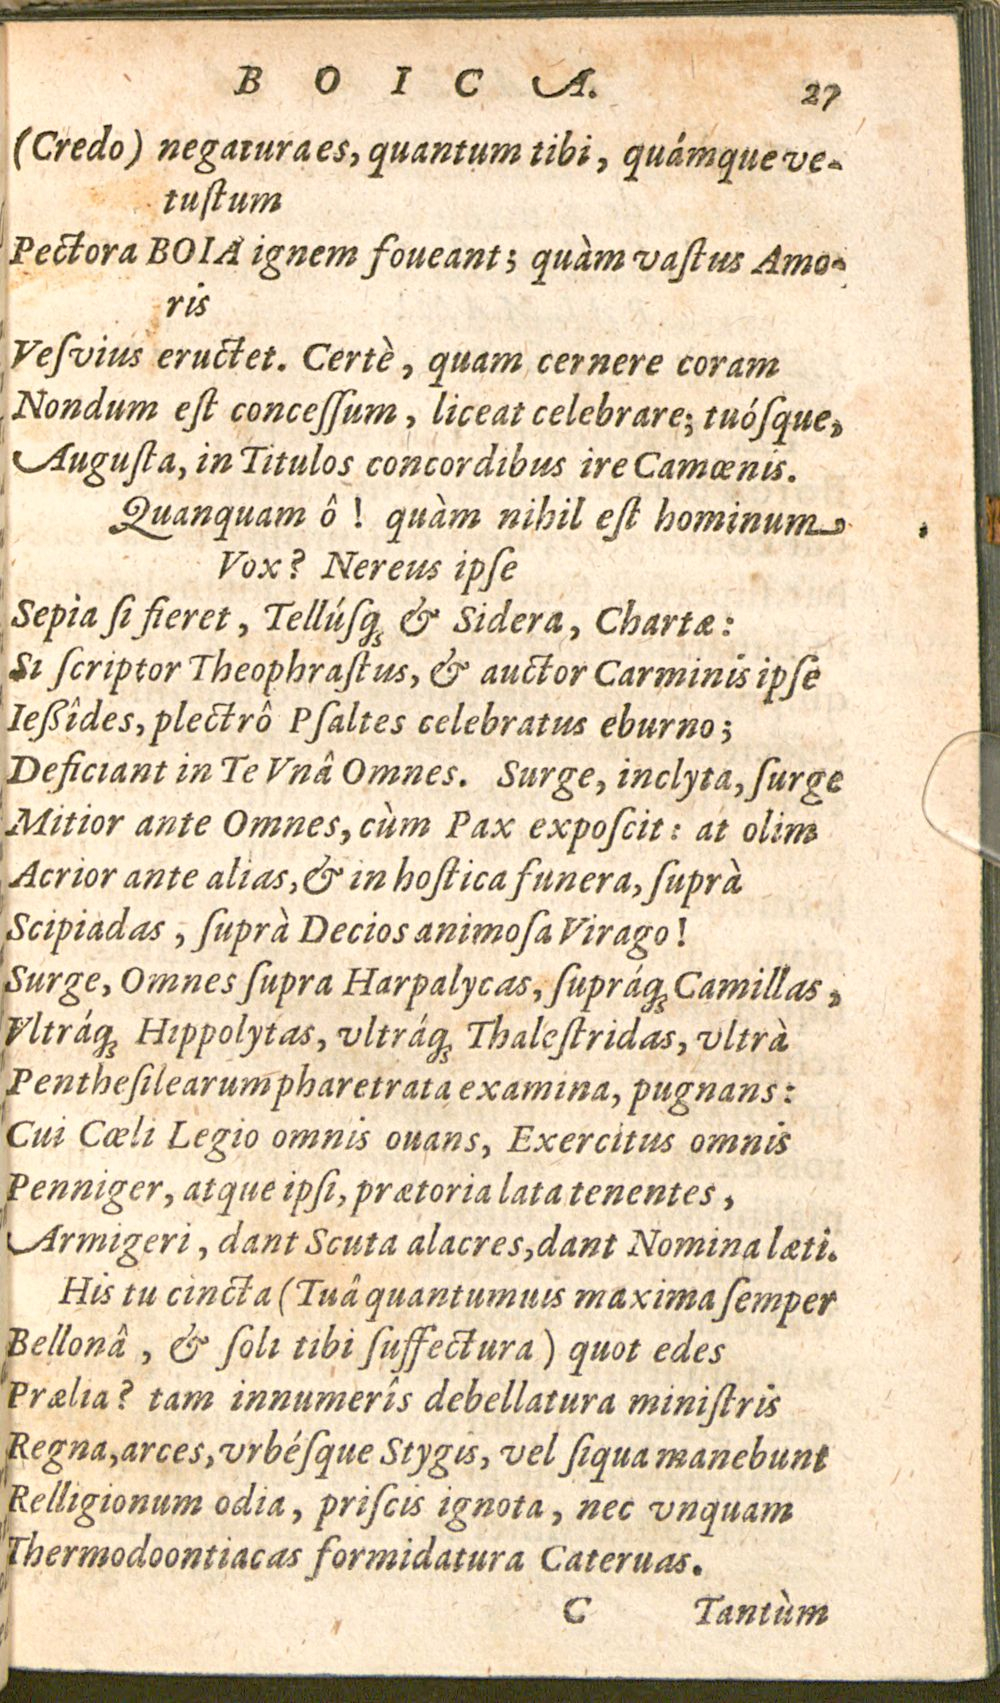 BOICA. 27
(Credo) negatura es, quantum tibi, quámque ve-
tuſtum
Pectora BOIA ignem foueant; quàm vaſtus Amo-
ris
Veſvius eructet. Certè, quam cernere coram
Nondum eſt conceſſum, liceat celebrare; tuóſque,
Auguſta, in Titulos concordibus ire Camœnis.
Quanquam ô! quàm nihil eſt hominum
Vox? Nereus ipſe
Sepia ſi fieret, Tellúſq; & Sidera, Chartæ:
Si ſcriptor Theophraſtus, & auctor Carminis ipſe
Ießîdes, plectrô Pſaltes celebratus eburno;
Deficiant in Te Vnâ Omnes. Surge, inclyta, ſurge
Mitior ante Omnes, cùm Pax expoſcit: at olim
Acrior ante alias, & in hoſtica funera, ſuprà
Scipiadas, ſuprà Decios animoſa Virago!
Surge, Omnes ſupra Harpalycas, ſupráq; Camillas,
Vltráq; Hippolytas, vltráq; Thaleſtridas, vltrà
Pentheſilearum pharetrata examina, pugnans:
Cui Cœli Legio omnis ouans, Exercitus omnis
Penniger, atque ipſi, prætoria lata tenentes,
Armigeri, dant Scuta alacres, dant Nomina læti.
His tu cincta (Tuâ quantumuis maxima ſemper
Bellonâ, & ſoli tibi ſuffectura) quot edes
Prælia? tam innumerîs debellatura miniſtris
Regna, arces, vrbéſque Stygis, vel ſiqua manebunt
Relligionum odia, priſcis ignota, nec vnquam
Thermodoontiacas formidatura Cateruas.
C Tantùm